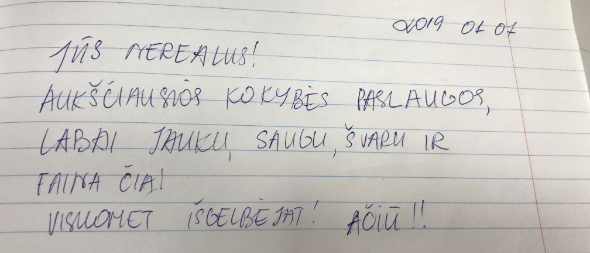 2019 01 07
JŪS NEREALUS!
AUKŠČIAUSIOS KOKYBĖS PASLAUGOS,
LABAI JAUKU, SAUGU, ŠVARU IR
FAINA ČIA!
VISUOMET IŠGELBĖJAT! AČIŪ!!